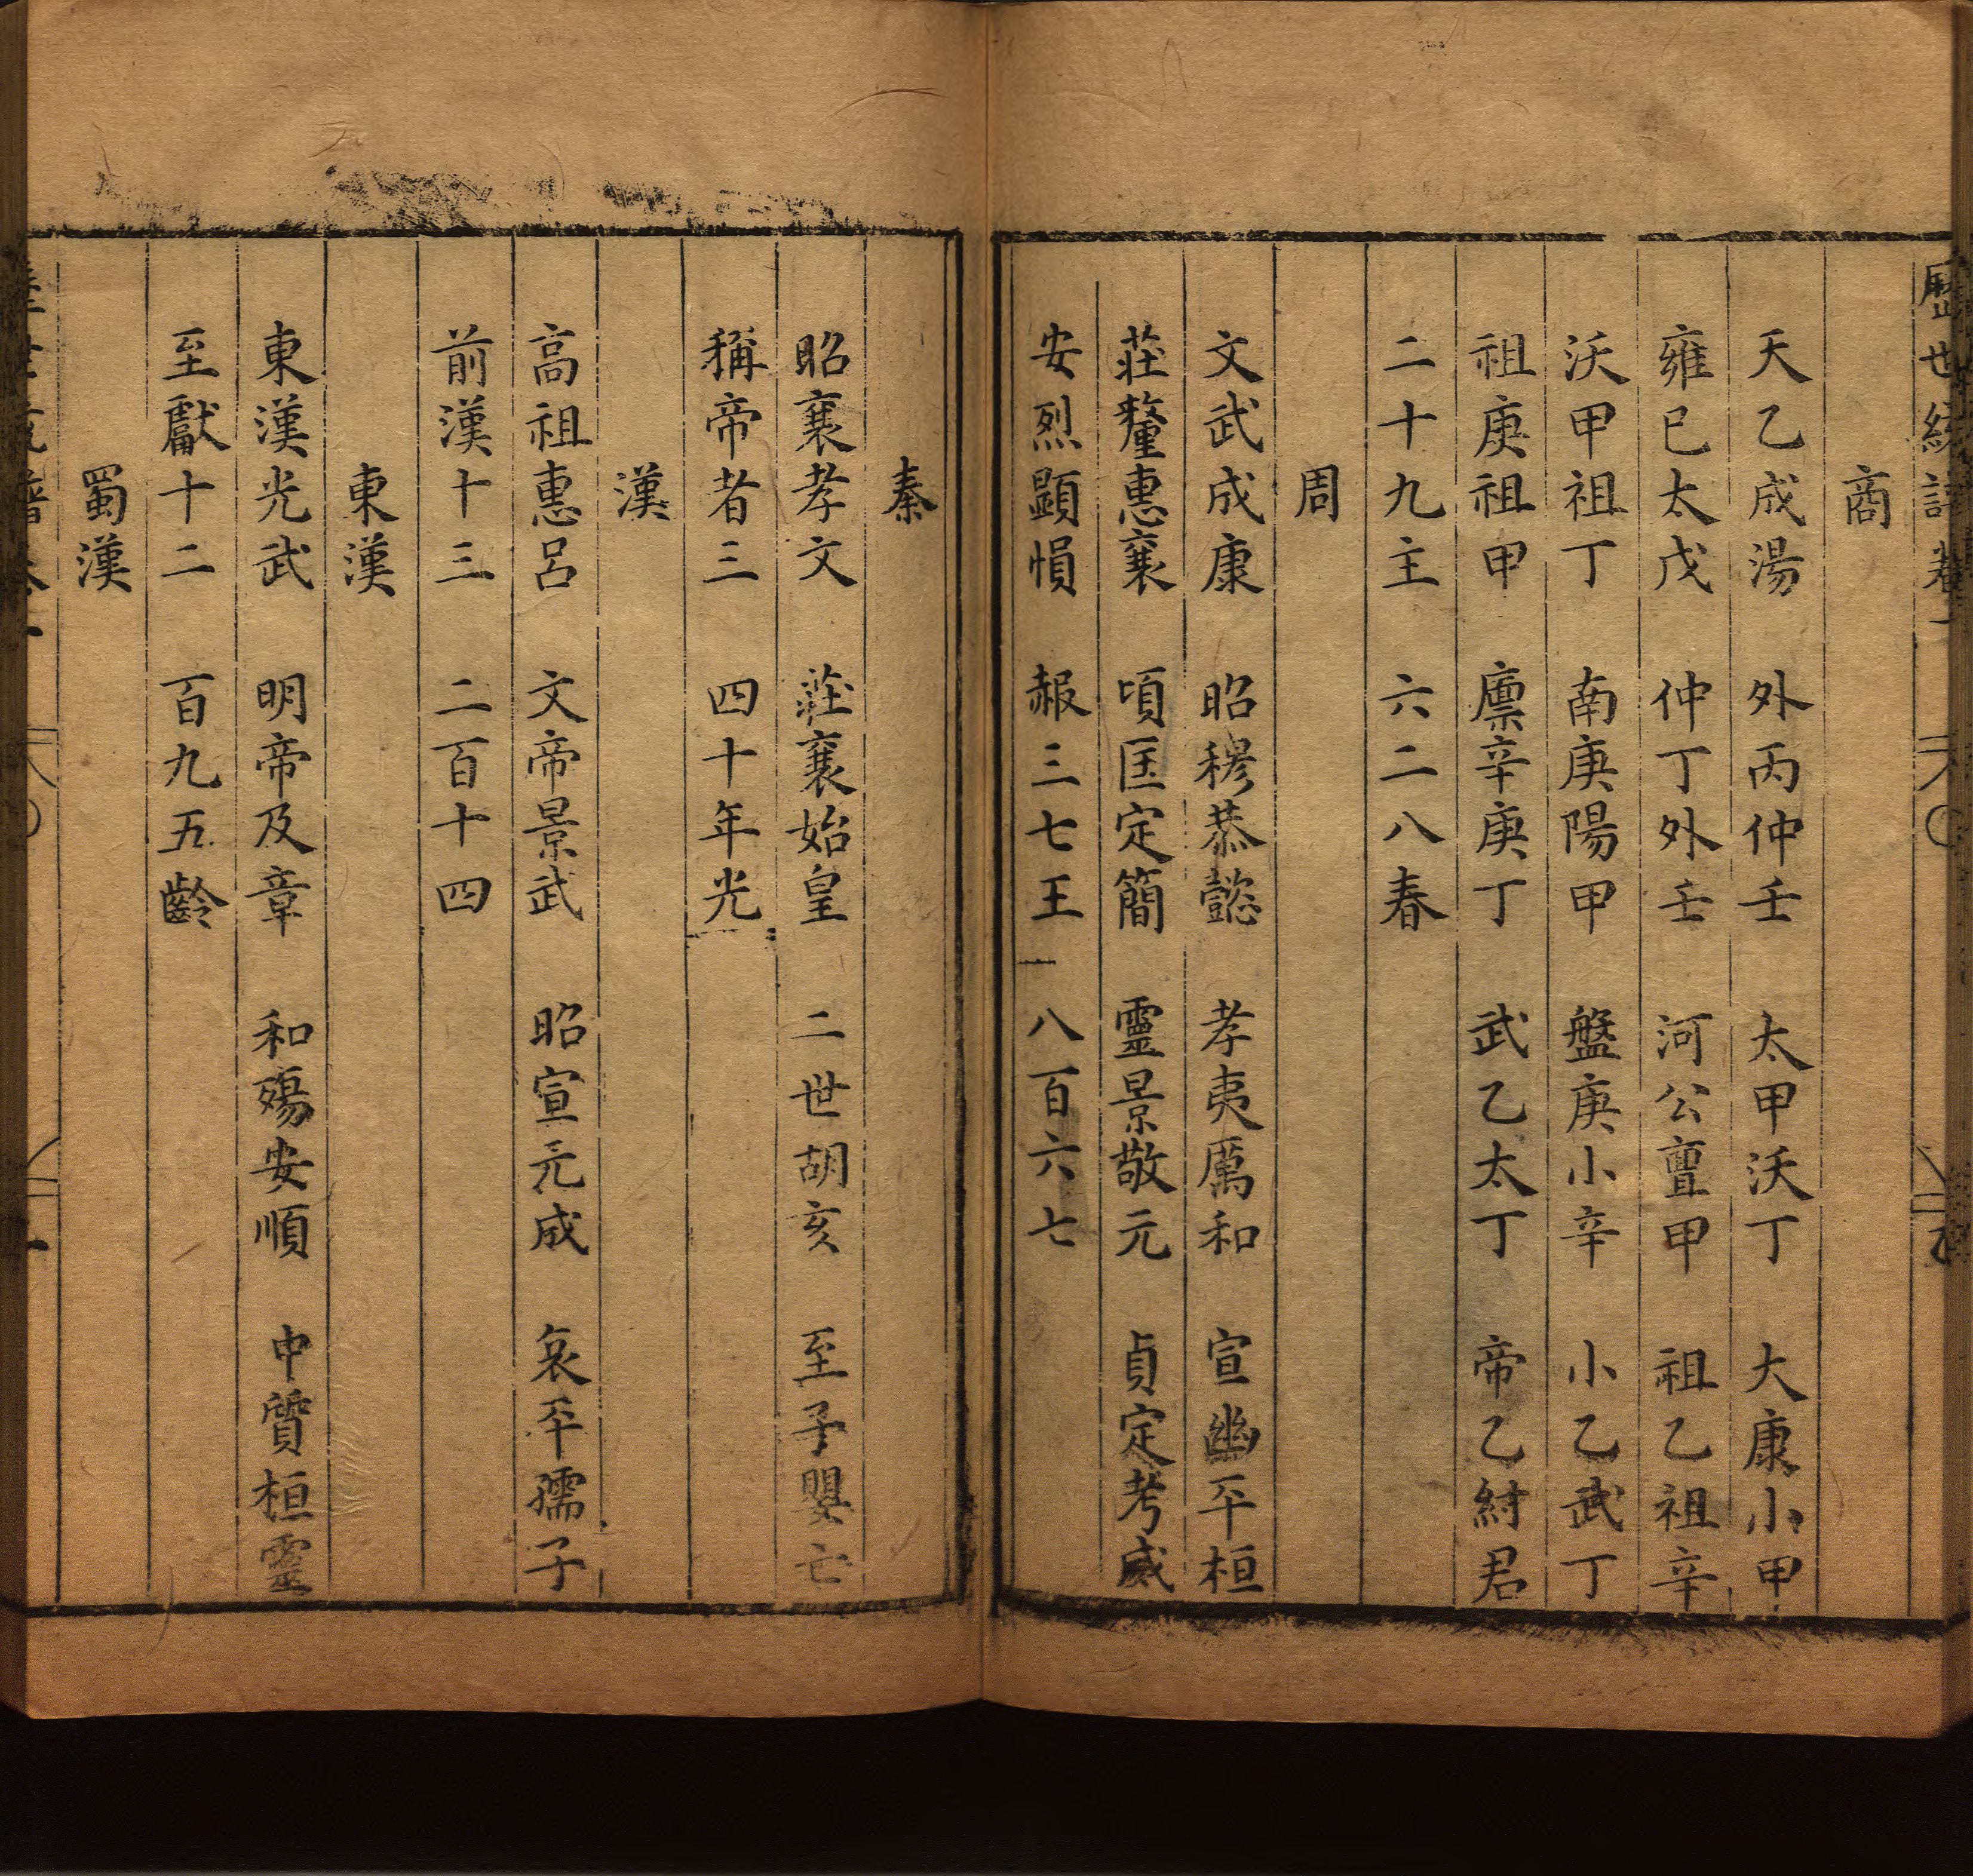 歷世統譜卷一
商
天乙成湯 外丙仲壬 太甲沃丁 大康小甲
雍已太戊 仲丁外壬 河亶甲 祖乙祖辛
沃甲祖丁 南庚陽甲 盤庚小辛 小乙武丁
祖庚祖甲 廪辛庚丁 武乙太丁 帝乙紂君
二十九主 六二八春
周
文武成康 昭穆恭懿 孝夷厲和 宣幽平桓
莊釐惠襄 頃匡定簡 靈景敬元 貞定考威
安烈顯慎 赧三七王 八百六七
秦
昭襄孝文 莊襄始皇 二世胡亥 至子嬰亡
稱帝者三 四十年光
漢
高祖惠呂 文帝景武 昭宣元成 哀平孺子
前漢十三 二百十四
東漢
東漢光武 明帝及章 和殤安順 冲質桓靈
至獻十二 百九五齡
蜀漢